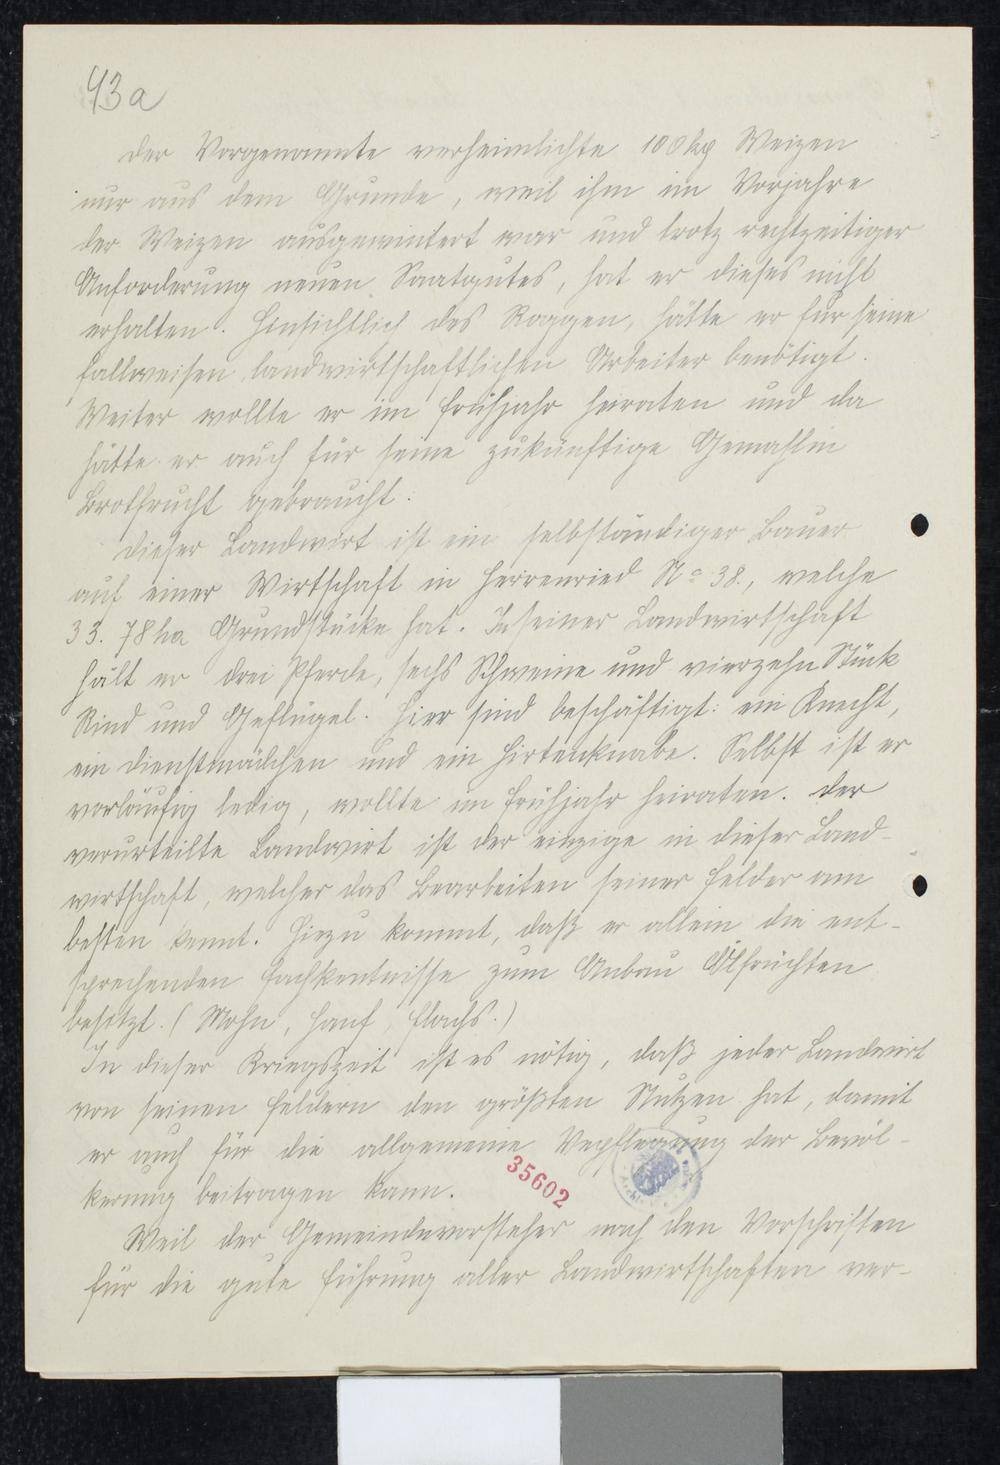 93a
Der Vorgenannte verheimlichte 100 kg Weizen
nur aus dem Grunde, weil ihm im Vorjahre
der Weizen ausgewintert war und trotz rechtzeitiger
Anforderung neuen Saatgutes, hat er dieses nicht
erhalten. Hinsichtlich des Roggen, hätte er für seine
fallweisen landwirtschaftlichen Arbeiter benötigt.
Weiter wollte er im Frühjahr heiraten und da
hätte er auch für seine zukünftige Gemahlin
Brotfrucht gebraucht.
Dieser Landwirt ist ein selbständiger Bauer
auf einer Wirtschaft in Herrenried No 38., welche
33.78 ha Grundstücke hat. In seiner Landwirtschaft
hält er drei Pferde, sechs Schweine und vierzehn Stück
Rind und Geflügel. Hier sind beschäftigt: ein Knecht,
ein Dienstmädchen und ein Hirtenknabe. Selbst ist er
vorläufig ledig, wollte im Frühjahr heiraten. Der
verurteilte Landwirt ist der einzige in dieser Land-
wirtschaft, welcher das Bearbeiten seiner Felder am
besten kennt. Hiezu kommt, daß er allein die ent-
sprechenden Fachkentnisse zum Anbau Ölfrüchten
besitzt. (Mohn, Hanf, Flachs.)
In dieser Kriegszeit ist es nötig, daß jeder Landwirt
von seinen Feldern den größten Nutzen hat, damit
er auch für die allgemeine Verpflegung der Bevöl-
kerung beitragen kann.
35602
Weil der Gemeindevorsteher nach den Vorschriften
für die gute Führung aller Landwirtschaften ver-